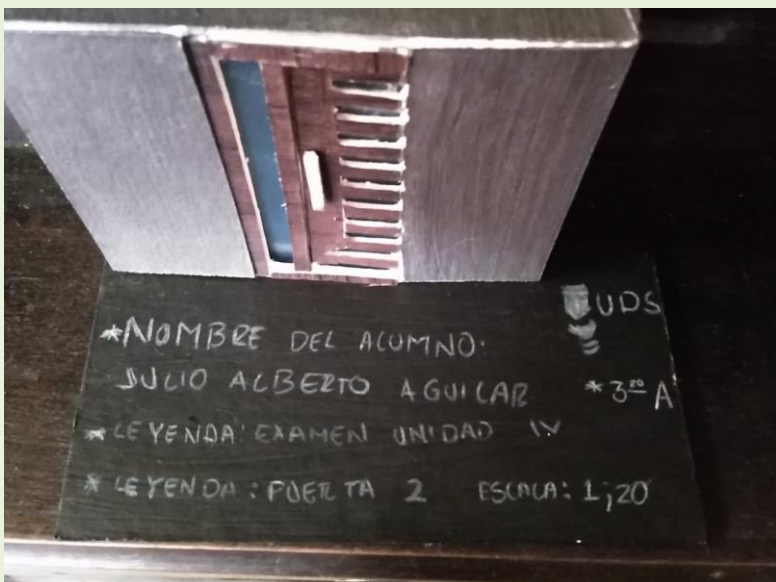 UDS
*NOMBRE DEL ALUMNO:
JULIO ALBERTO AGUILAR *3ro A
*LEYENDA: EXAMEN UNIDAD IV
*LEYENDA: PUERTA 2 ESCALA: 1;20